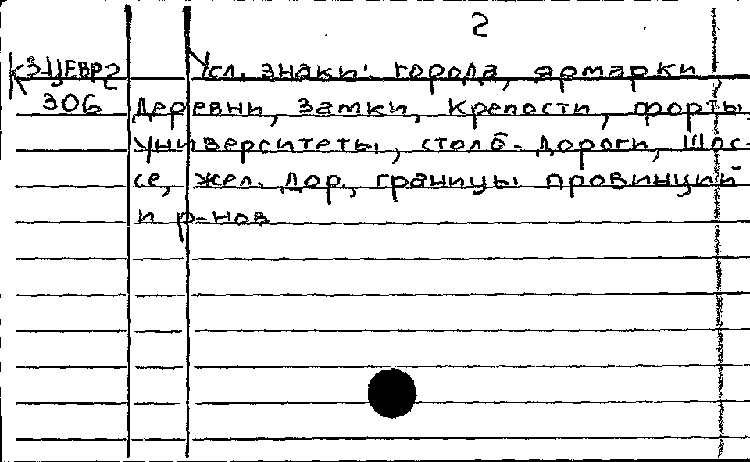 2
К3-ЦЕВР2 Усл. знаки: города, ярмарки,
306 деревни, замки, крепости, форты,
университеты, столб. дороги, шос-
се, жел. дор., границы провинций
и р-нов